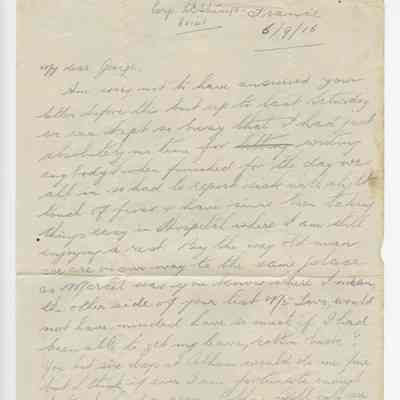 France
6/9/16
My dear George.
Am sorry not to have answered your
letter before this but up to last Saturday
we were kept so busy that I had just
absolutely no time for writing
anybody & when finished for the day was
all in & had to report sick with a
touch of fever & have since been taking
things easy in Hospital where I am still
enjoying a rest. By the way old man
we are on our way to the same place
as Marcel was you know where I mean
the other side of your last
not have minded have so much if I had
been able to get my leave, rotten luck.
You bet six days at would do me fine
but I think if ever I am fortunate enough